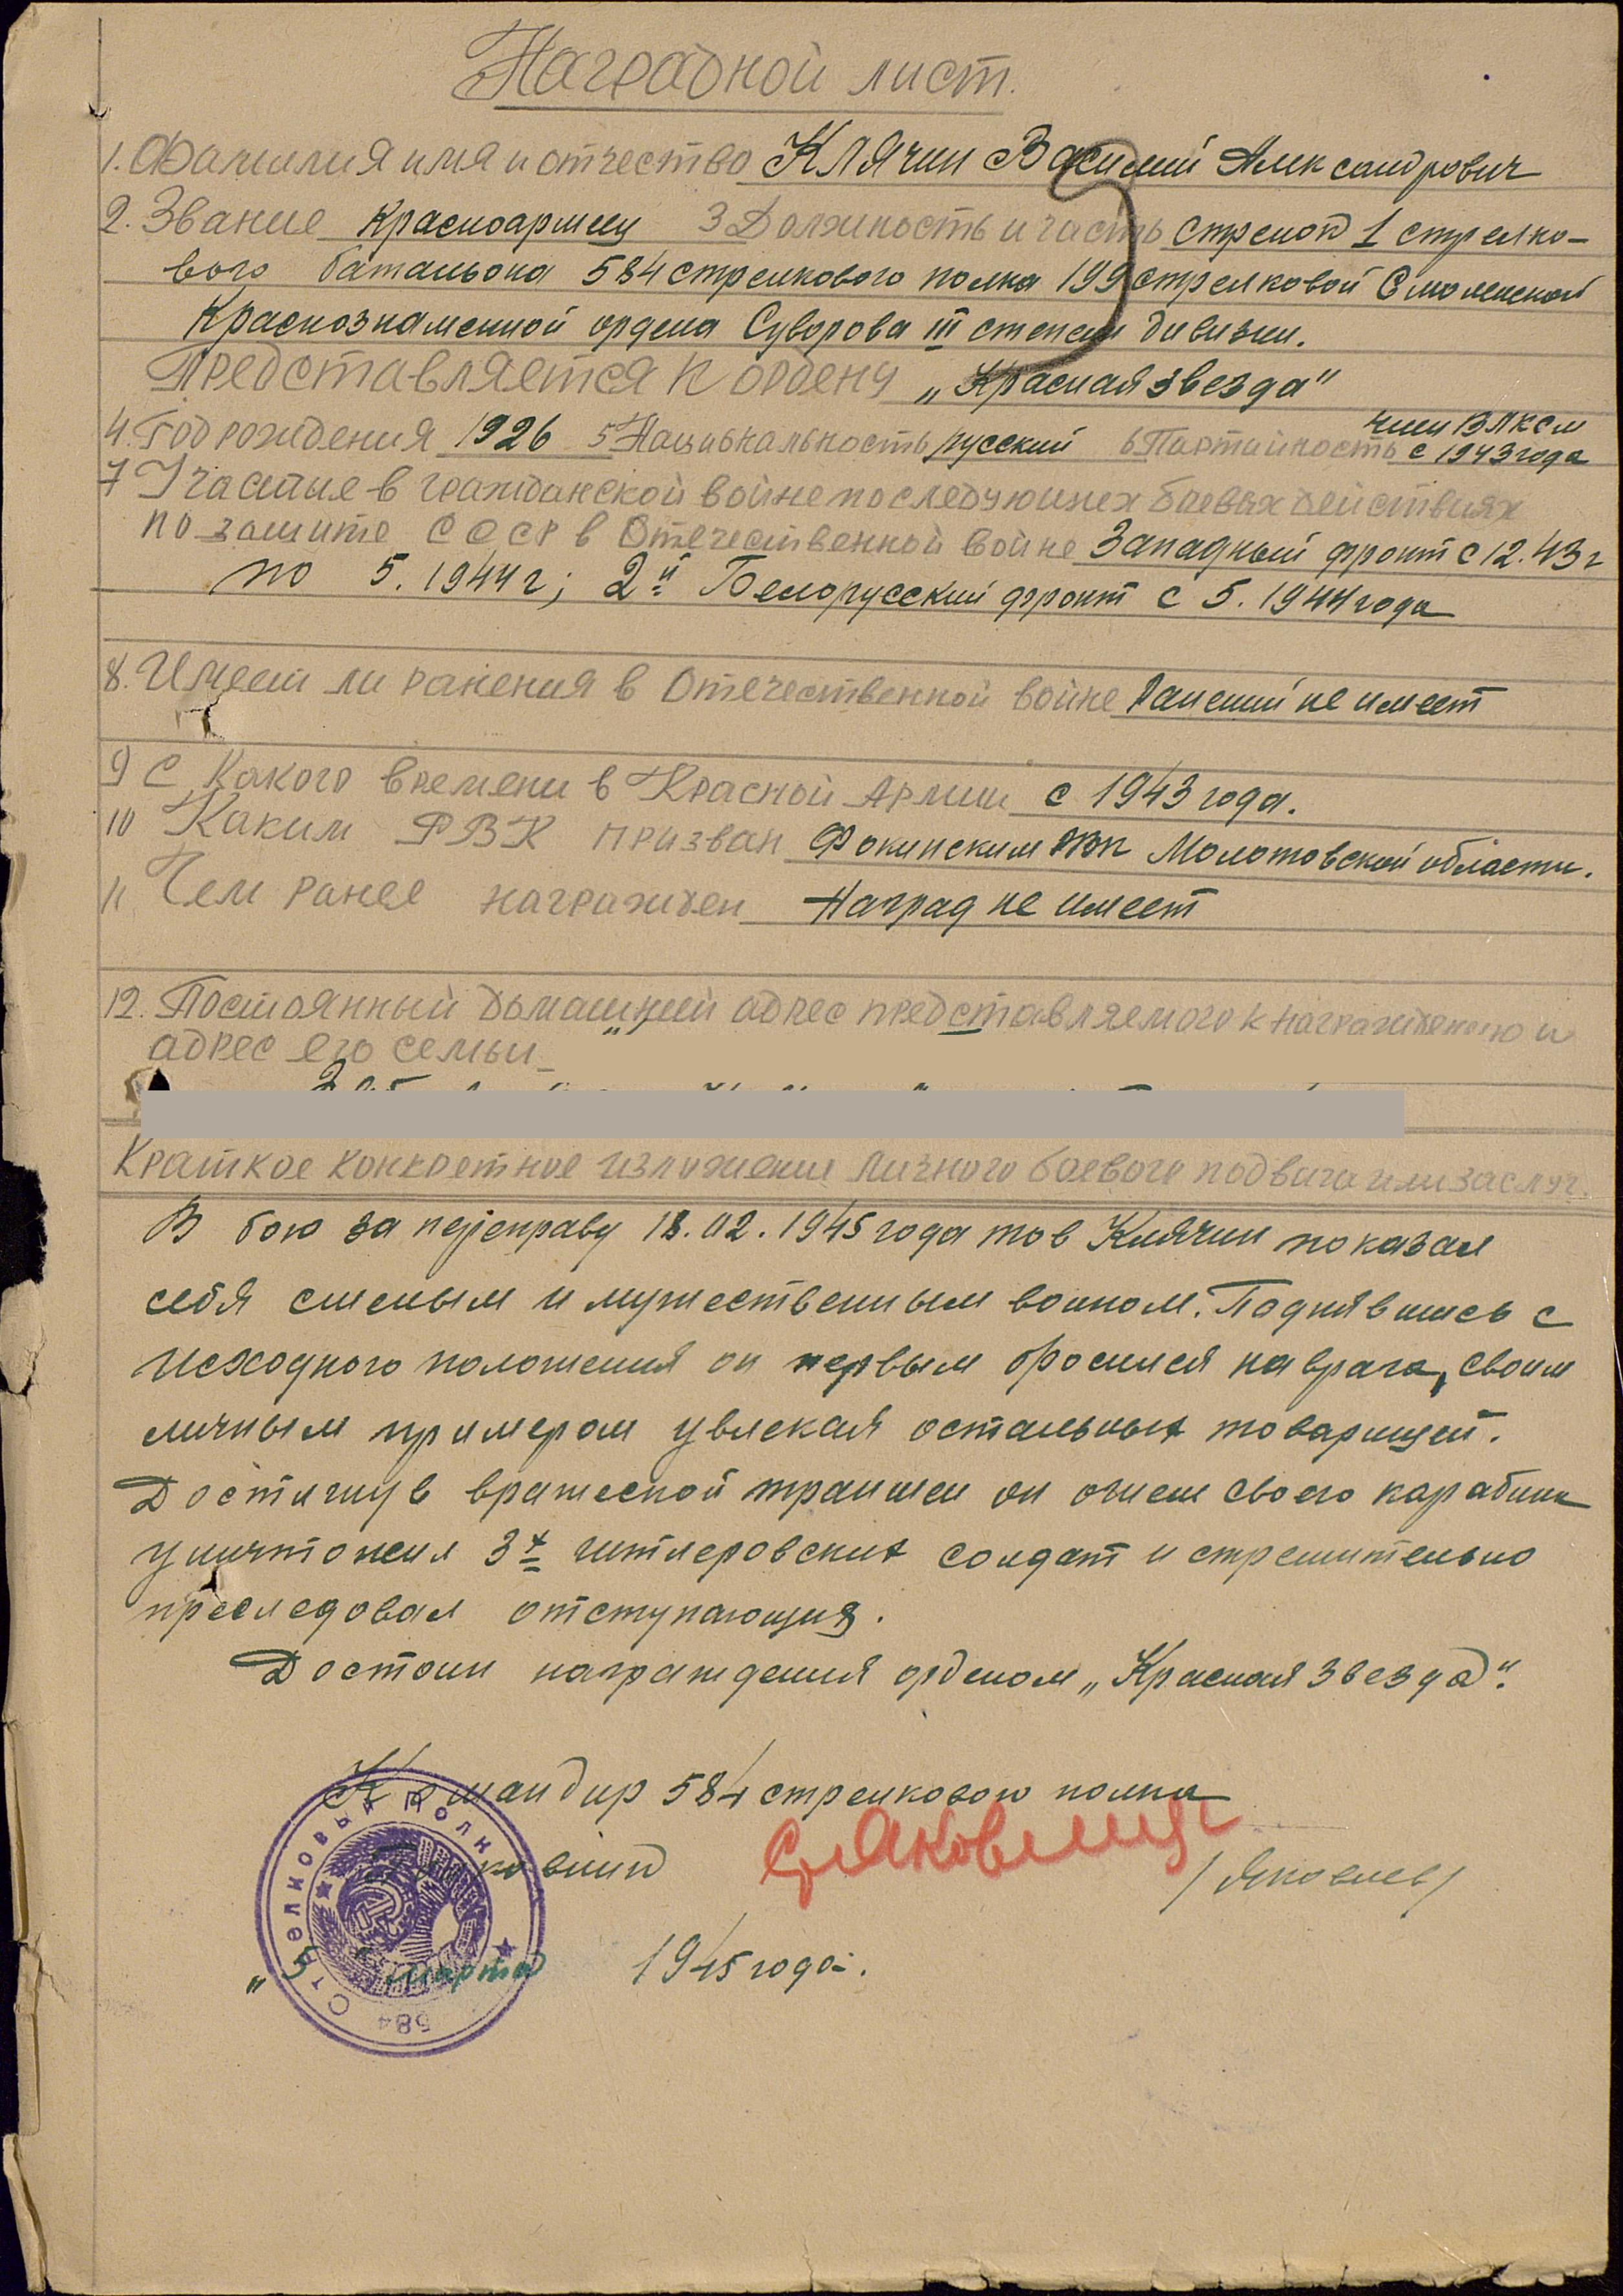 Наградной лист.
1. Фамилия имя и отчество Клячин Василий Александрович
2. Звание красноармеец 3 Должность и часть стрелок 1 стрелко-
вого батальона 584 стрелкового полка 199 стрелковой Смоленской
Краснознаменной ордена Суворова III степени дивизии.
Представляется к ордену „Красная звезда"
член ВЛКСМ
4. Год рождения 1926 5 Национальность русский 6 Партийность с 1943 года
7 Участие в гражданской войне последующих боевых действиях
по защите СССР в Отечественной войне Западный фронт с 12.43 г
по 5.1944 г; 2й Белорусский фронт с 5.1944 года
8. Имеет ли ранения в Отечественной войне Ранений не имеет
9 С какого времени в Красной Армии с 1943 года.
10 Каким РВК призван Фокинским РВК Молотовской области.
11 Чем ранее награжден Наград не имеет
12. Постоянный домашний адрес представляемого к награждению и
адрес его семьи
Краткое конкретное изложение личного боевого подвига или заслуг
В бою за переправу 18.02.1945 года тов Клячин показал
себя смелым и мужественным воином. Поднявшись с
исходного положения он первым бросился на врага, своим
личным примером увлекая остальных товарищей.
Достигнув вражеской траншеи он огнем своего карабина
уничтожил 3х гитлеровских солдат и стремительно
преследовал отступающих.
Достоин награждения орденом „Красная Звезда".
Командир 584 стрелкового полка
Полковник /Яковлев/
„5" марта 1945 года.
584 Стрелковый Полк